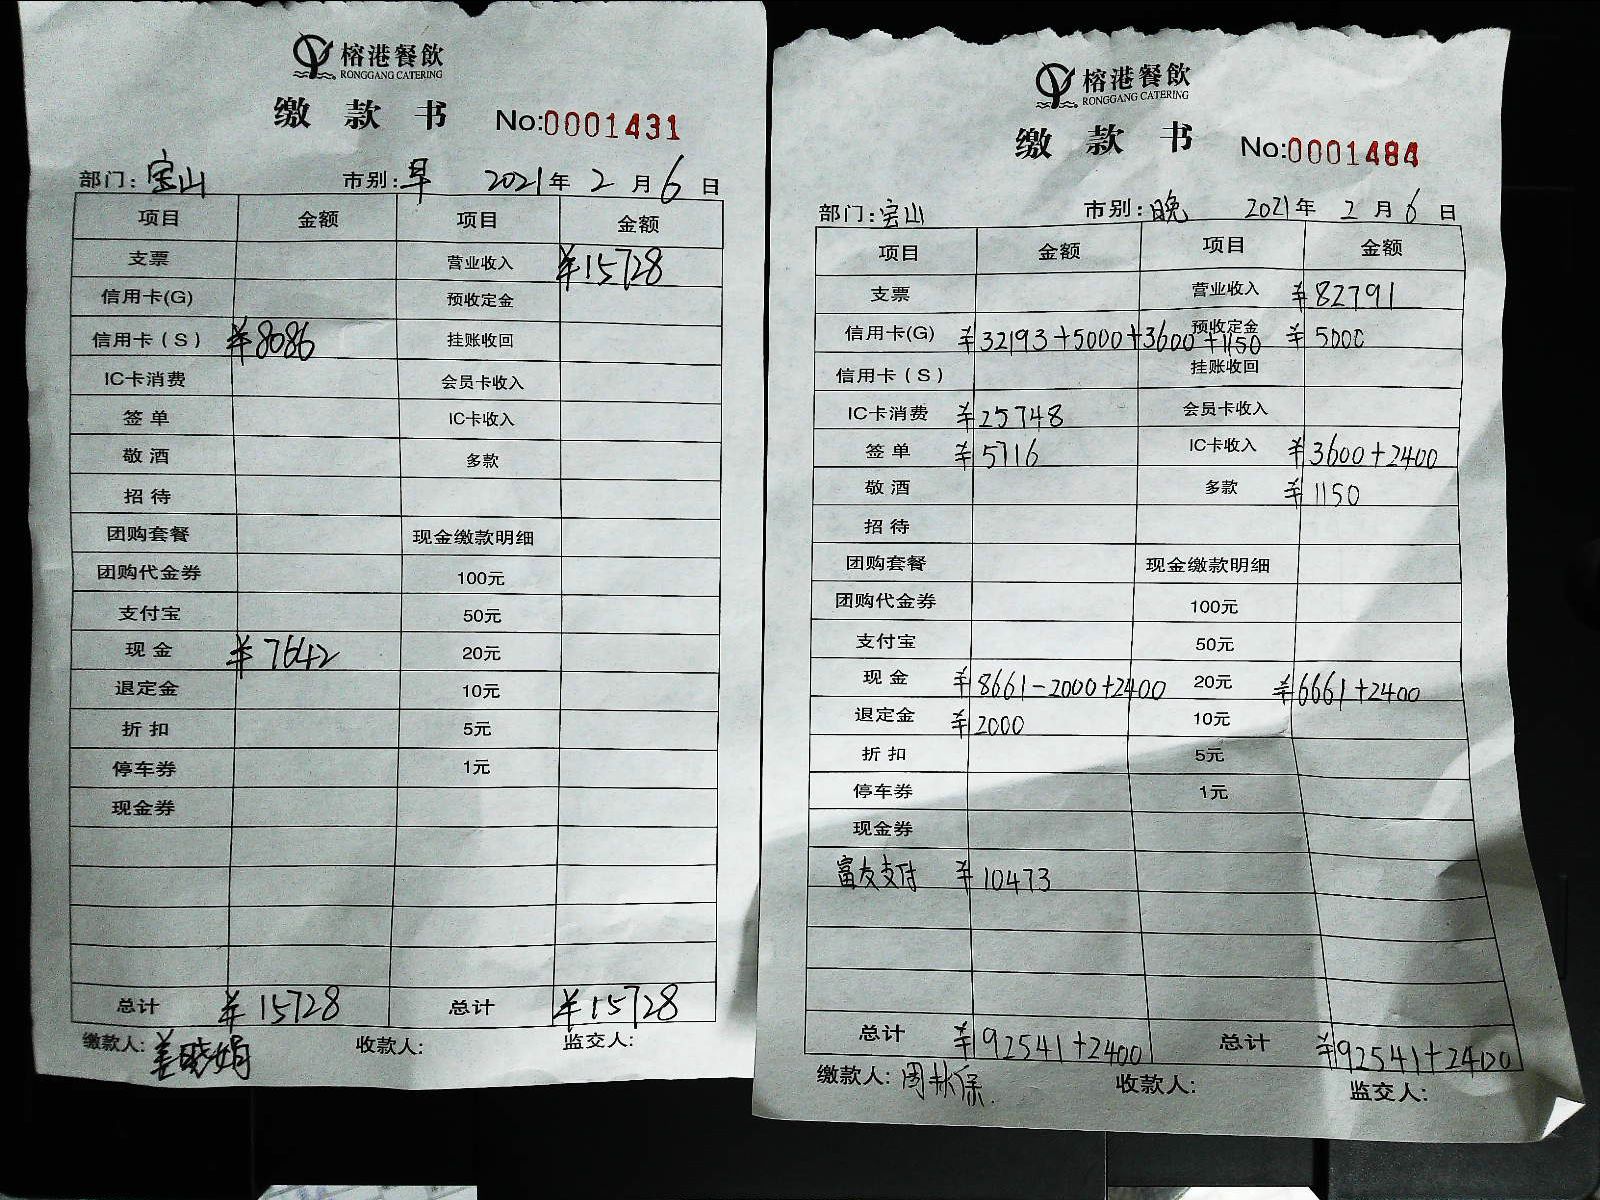 榕港餐飲
RONGGANG CATERING
缴款书 No:0001431
部门:宝山 市别:早 2021年2月6日
项目 金额 项目 金额
支票 营业收入 ¥15728
信用卡(G) 预收定金
信用卡(S) ¥8086 挂账收回
IC卡消费 会员卡收入
签单 IC卡收入
敬酒 多款
招待
团购套餐 现金缴款明细
团购代金券 100元
支付宝 50元
现金 ¥7642 20元
退定金 10元
折扣 5元
停车券 1元
现金券
总计 ¥15728 总计 ¥15728
缴款人:姜晓娟 收款人: 监交人:
榕港餐飲
RONGGANG CATERING
缴款书 No:0001484
部门:宝山 市别:晚 2021年2月6日
项目 金额 项目 金额
支票 营业收入 ¥82791
信用卡(G) ¥32193+5000+3600+1150 预收定金 ¥5000
信用卡(S) 挂账收回
IC卡消费 ¥25748 会员卡收入
签单 ¥5716 IC卡收入 ¥3600+2400
敬酒 多款 ¥1150
招待
团购套餐 现金缴款明细
团购代金券 100元
支付宝 50元
现金 ¥8661-2000+2400 20元 ¥6661+2400
退定金 ¥2000 10元
折扣 5元
停车券 1元
现金券
富友支付 ¥10473
总计 ¥92541+2400 总计 ¥92541+2400
缴款人:周林保 收款人: 监交人: